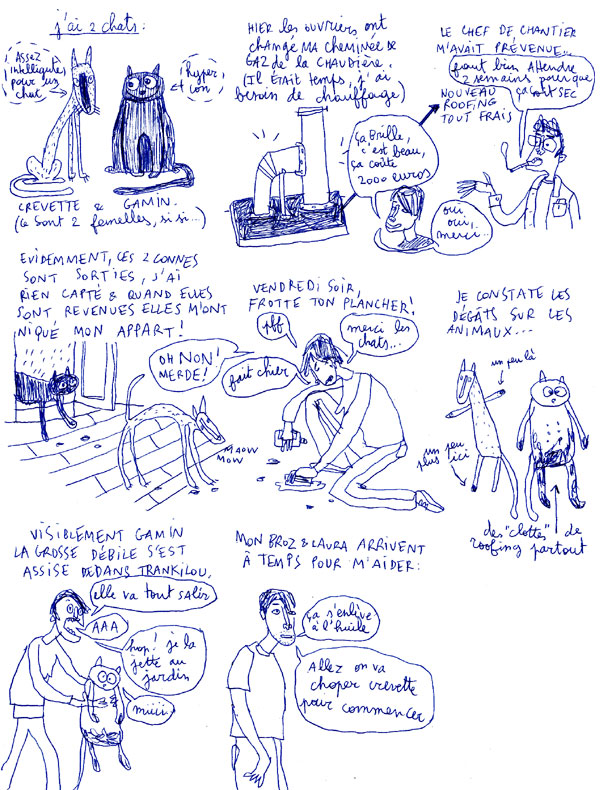 j'ai 2 chats:
ASSEZ
intelligente
pour un
chat
hyper
con
CREVETTE & GAMIN.
(Ce sont 2 femelles, si si...)
HIER les OUVRIERS ONT
CHANGÉ MA CHEMINÉE DE
GAZ DE LA CHAUDIÈRE.
(Il ÉTAIT TEMPS, j'ai
besoin de chauffage)
ça BRILLE,
c'est beau,
ça coûte
2000 euros
LE CHEF DE CHANTIER
M'AVAIT PRÉVENUE...
faut bien Attendre
2 semaines pour que
ça soit SEC
NOUVEAU
ROOFING
TOUT FRAIS
oui
oui,
merci...
EVIDEMMENT, CES 2 CONNES
SONT SORTIES, J'AI
RIEN CAPTÉ & QUAND ELLES
SONT REVENUES ELLES M'ONT
NIQUÉ MON APPART!
OH NON!
MERDE!
MAOW
MOW
VENDREDI SOIR,
FROTTE TON PLANCHER!
pff
merci les
chats...
fait chier
JE CONSTATE LES
DÉGÂTS SUR LES
ANIMAUX...
un peu là
un peu
plus ici
des "clottes" de
roofing partout
VISIBLEMENT GAMIN
LA GROSSE DÉBILE S'EST
ASSISE DEDANS TRANKILOU,
elle va tout salir
AAA
hop! je la
jette au
jardin
miiii
MON BROZ & LAURA ARRIVENT
À TEMPS POUR M'AIDER:
ça s'enlève
à l'huile
Allez on va
choper crevette
pour commencer